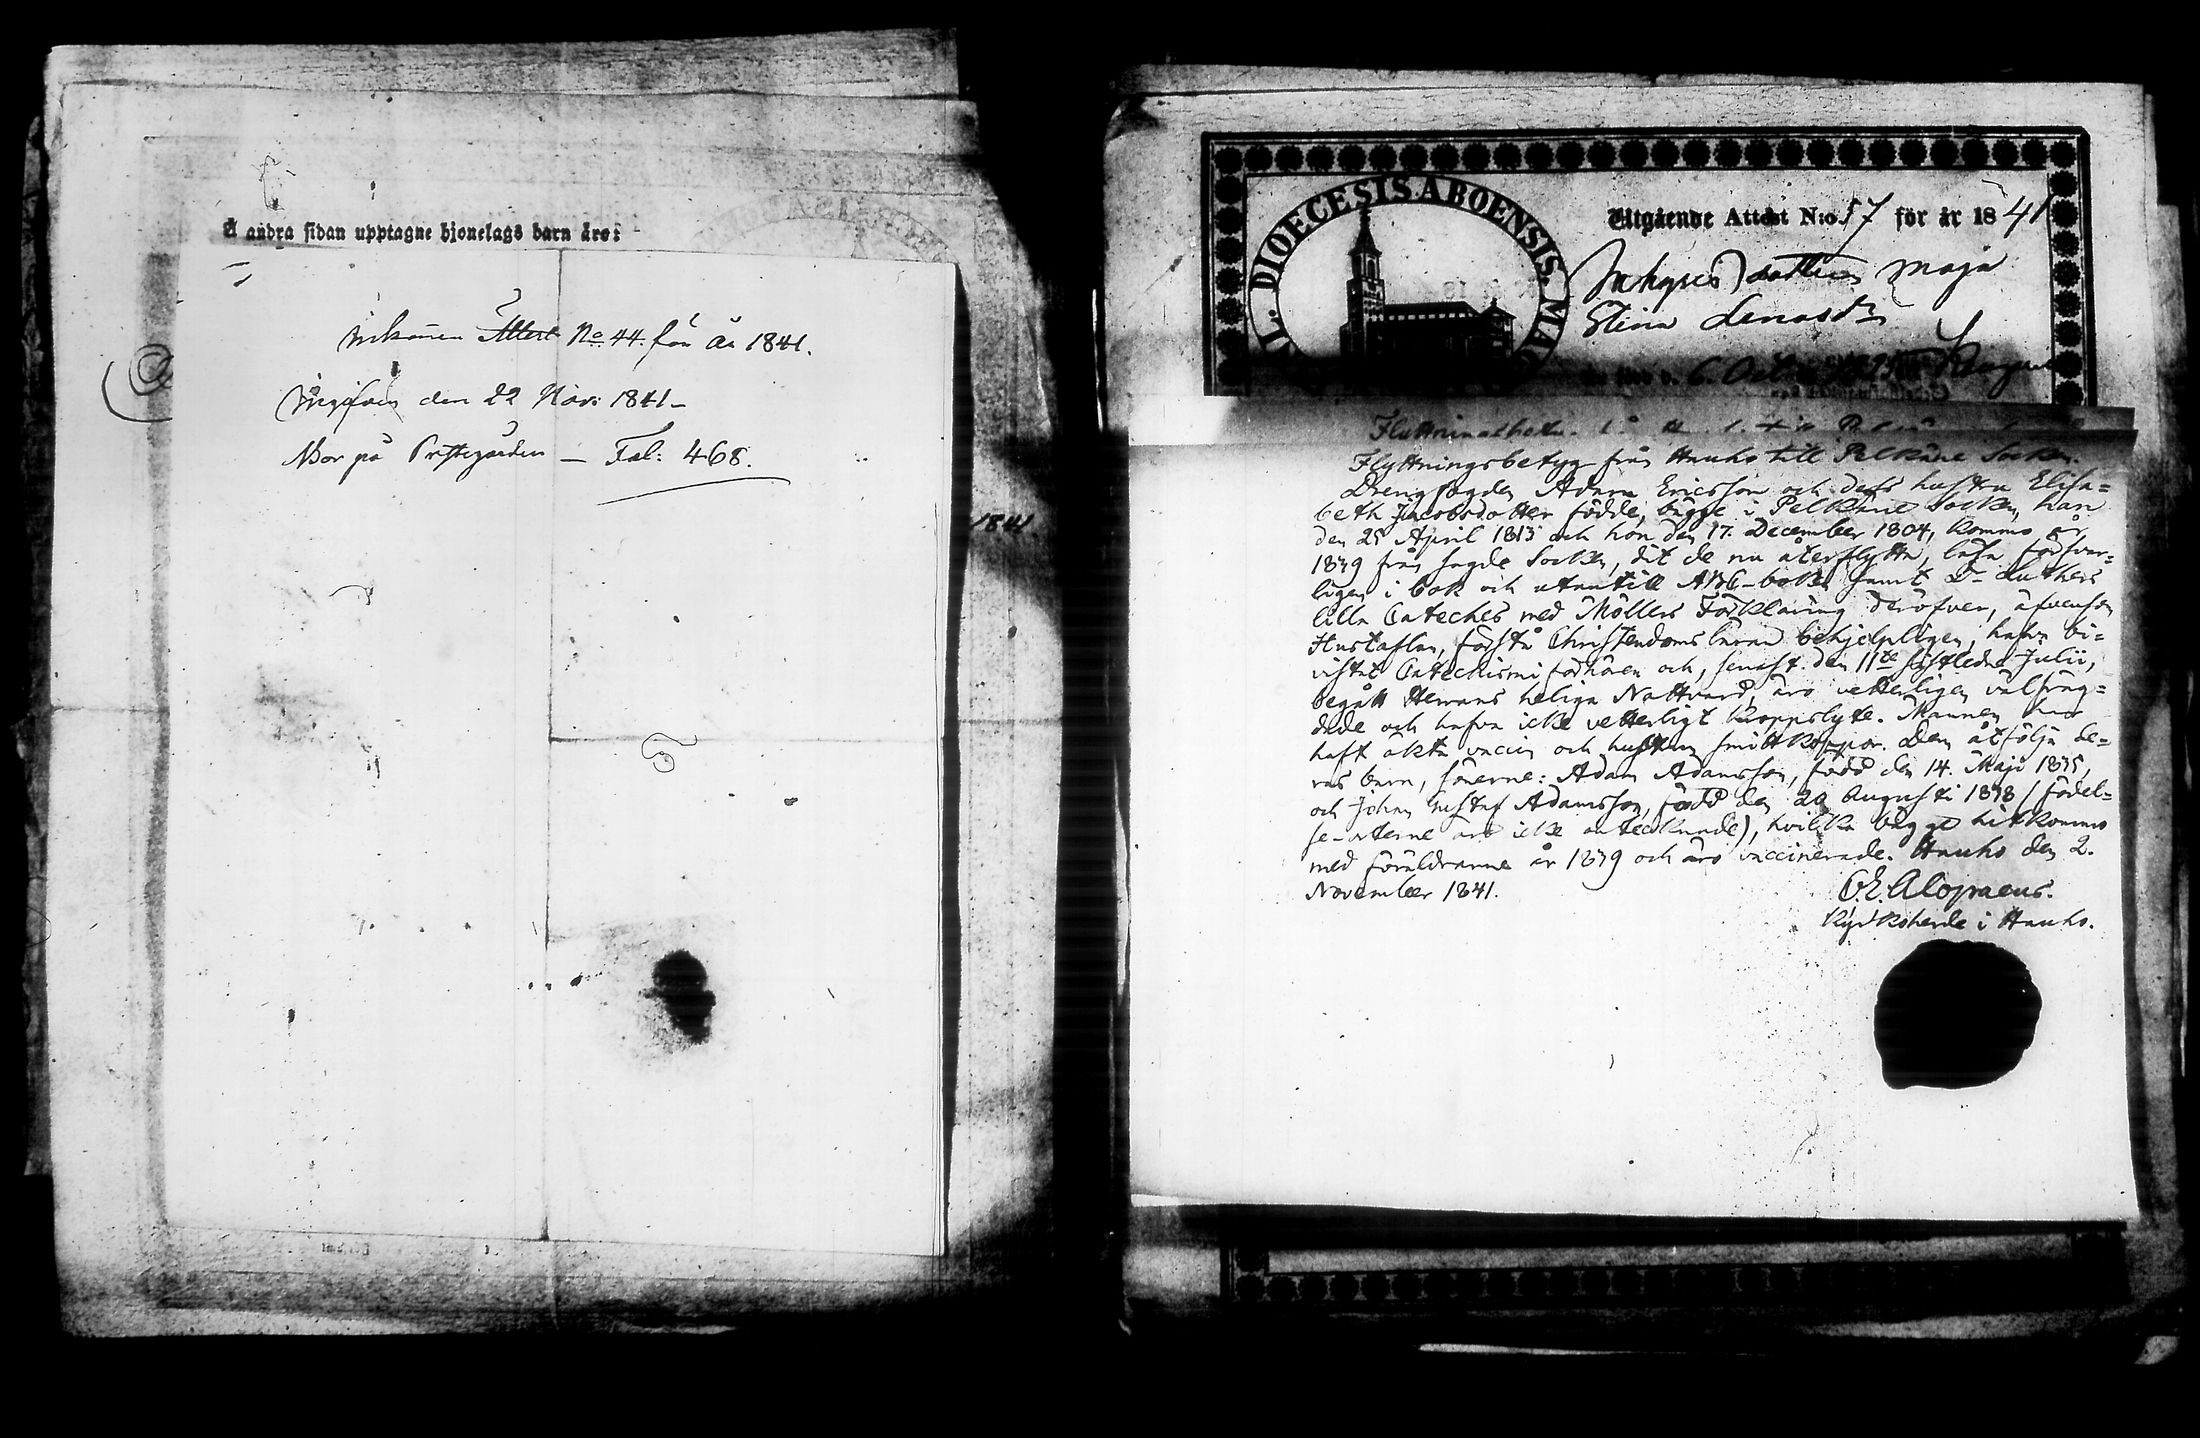 å andra sidan upptagne hjonelags barn äro:
Inkommen Attest No 44. för år 1841.
Ingifven den 22 Nov: 1841 –
Bor på Prestegården – Fol: 468.
1841.
DIOECESIS ABOENSIS. MA
Utgående Attest N:o 57 för år 1841
Inhyses dottren Maja
Stina Lenasdr
6. Oct
Flyttningsbetyg från Hauho till Pelkäne Socken.
Drengfogden Adam Ericsson och dess hustru Elisa=
beth Jacobsdotter födde, bägge i Pelkäne Socken, han
den 25 April 1813 och hon den 17. December 1804, komno år
1839 från sagde Socken, dit de nu återflytta, läsa försvar=
ligen i bok och utantill ABC-boken samt Dr Luthers
lilla Cateches med Möllers Förklaring deröfver, äfvensom
Hustaflan, förstå Christendomsläran behjelpligen, hafva bi=
vistat Catechismi förhören och, senast den 11te sistledne Julii,
begått Herrans heliga Nattvard, äro vetterligen välfräg=
dade och hafva icke vetterligt kroppslyte. Mannen har
haft äkta vaccin och hustrun smittkoppor. Dem åtfölja de=
ras barn, sönerne: Adam Adamsson, född den 14. Maji 1835,
och Johan Gustaf Adamsson, född den 20 Augusti 1838 (födel=
se-orterne äro icke antecknade), hvilka bägge hitkommo
med föräldrarne år 1839 och äro vaccinerade. Hauho den 2.
November 1841.
C. E. Alopaeus.
Kyrkoherde i Hauho.